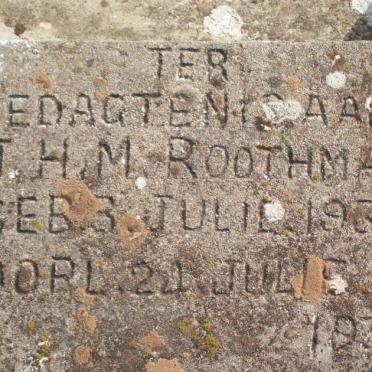 TER
EDAGTENIS AAN
T. H. M. ROOTHMA
GEB. 3. JULIE. 193
OORL. 24. JULIE
193